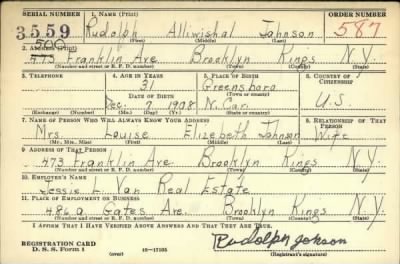 SERIAL NUMBER 1. NAME (Print) ORDER NUMBER
3559 Rudolph Alliwishal Johnson 587
(First) (Middle) (Last)
500
2. ADDRESS (Print)
473 Franklin Ave. Brooklyn Kings N.Y.
(Number and street or R. F. D. number) (Town) (County) (State)
3. TELEPHONE 4. AGE IN YEARS 5. PLACE OF BIRTH 6. COUNTRY OF CITIZENSHIP
31 Greensboro
DATE OF BIRTH (Town or county)
Dec. 7 1908 N. Car. U.S.
(Exchange) (Number) (Mo.) (Day) (Yr.) (State or country)
7. NAME OF PERSON WHO WILL ALWAYS KNOW YOUR ADDRESS 8. RELATIONSHIP OF THAT PERSON
Mrs. Louise Elizabeth Johnson Wife
(Mr., Mrs., Miss) (First) (Middle) (Last)
9. ADDRESS OF THAT PERSON
473 Franklin Ave. Brooklyn Kings N.Y.
(Number and street or R. F. D. number) (Town) (County) (State)
10. EMPLOYER'S NAME
Jessie L. Van Real Estate
11. PLACE OF EMPLOYMENT OR BUSINESS
486a Gates Ave. Brooklyn Kings N.Y.
(Number and street or R. F. D. number) (Town) (County) (State)
I AFFIRM THAT I HAVE VERIFIED ABOVE ANSWERS AND THAT THEY ARE TRUE.
REGISTRATION CARD
D. S. S. Form 1 (over) 16—17105 Rudolph Johson
(Registrant's signature)